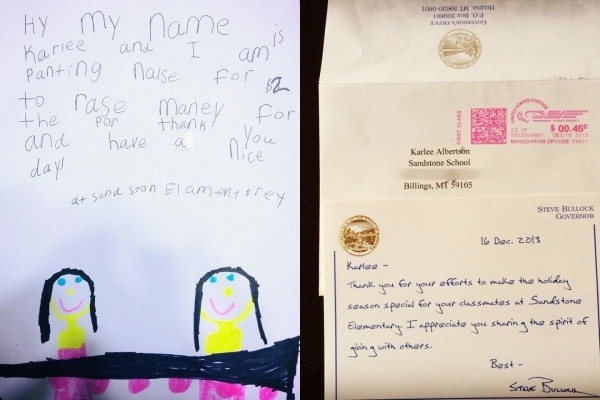 Hy my name is
Karlee and I am
panting nalse for $2
to rase maney for
the por thank you
and have a nice
day!
at sandston Elamentorey
GOVERNOR'S OFFICE
P.O. BOX 200801
HELENA, MT 59620-0801
FIRST CLASS
UNITED STATES POSTAGE
$ 00.46⁰
DEC 16 2013
MAILED FROM ZIP CODE
Karlee Albertson
Sandstone School
Billings, MT 59105
STEVE BULLOCK
GOVERNOR
16 Dec. 2013
Karlee -
Thank you for your efforts to make the holiday
season special for your classmates at Sandstone
Elementary. I appreciate you sharing the spirit of
giving with others.
Best -
Steve Bullock